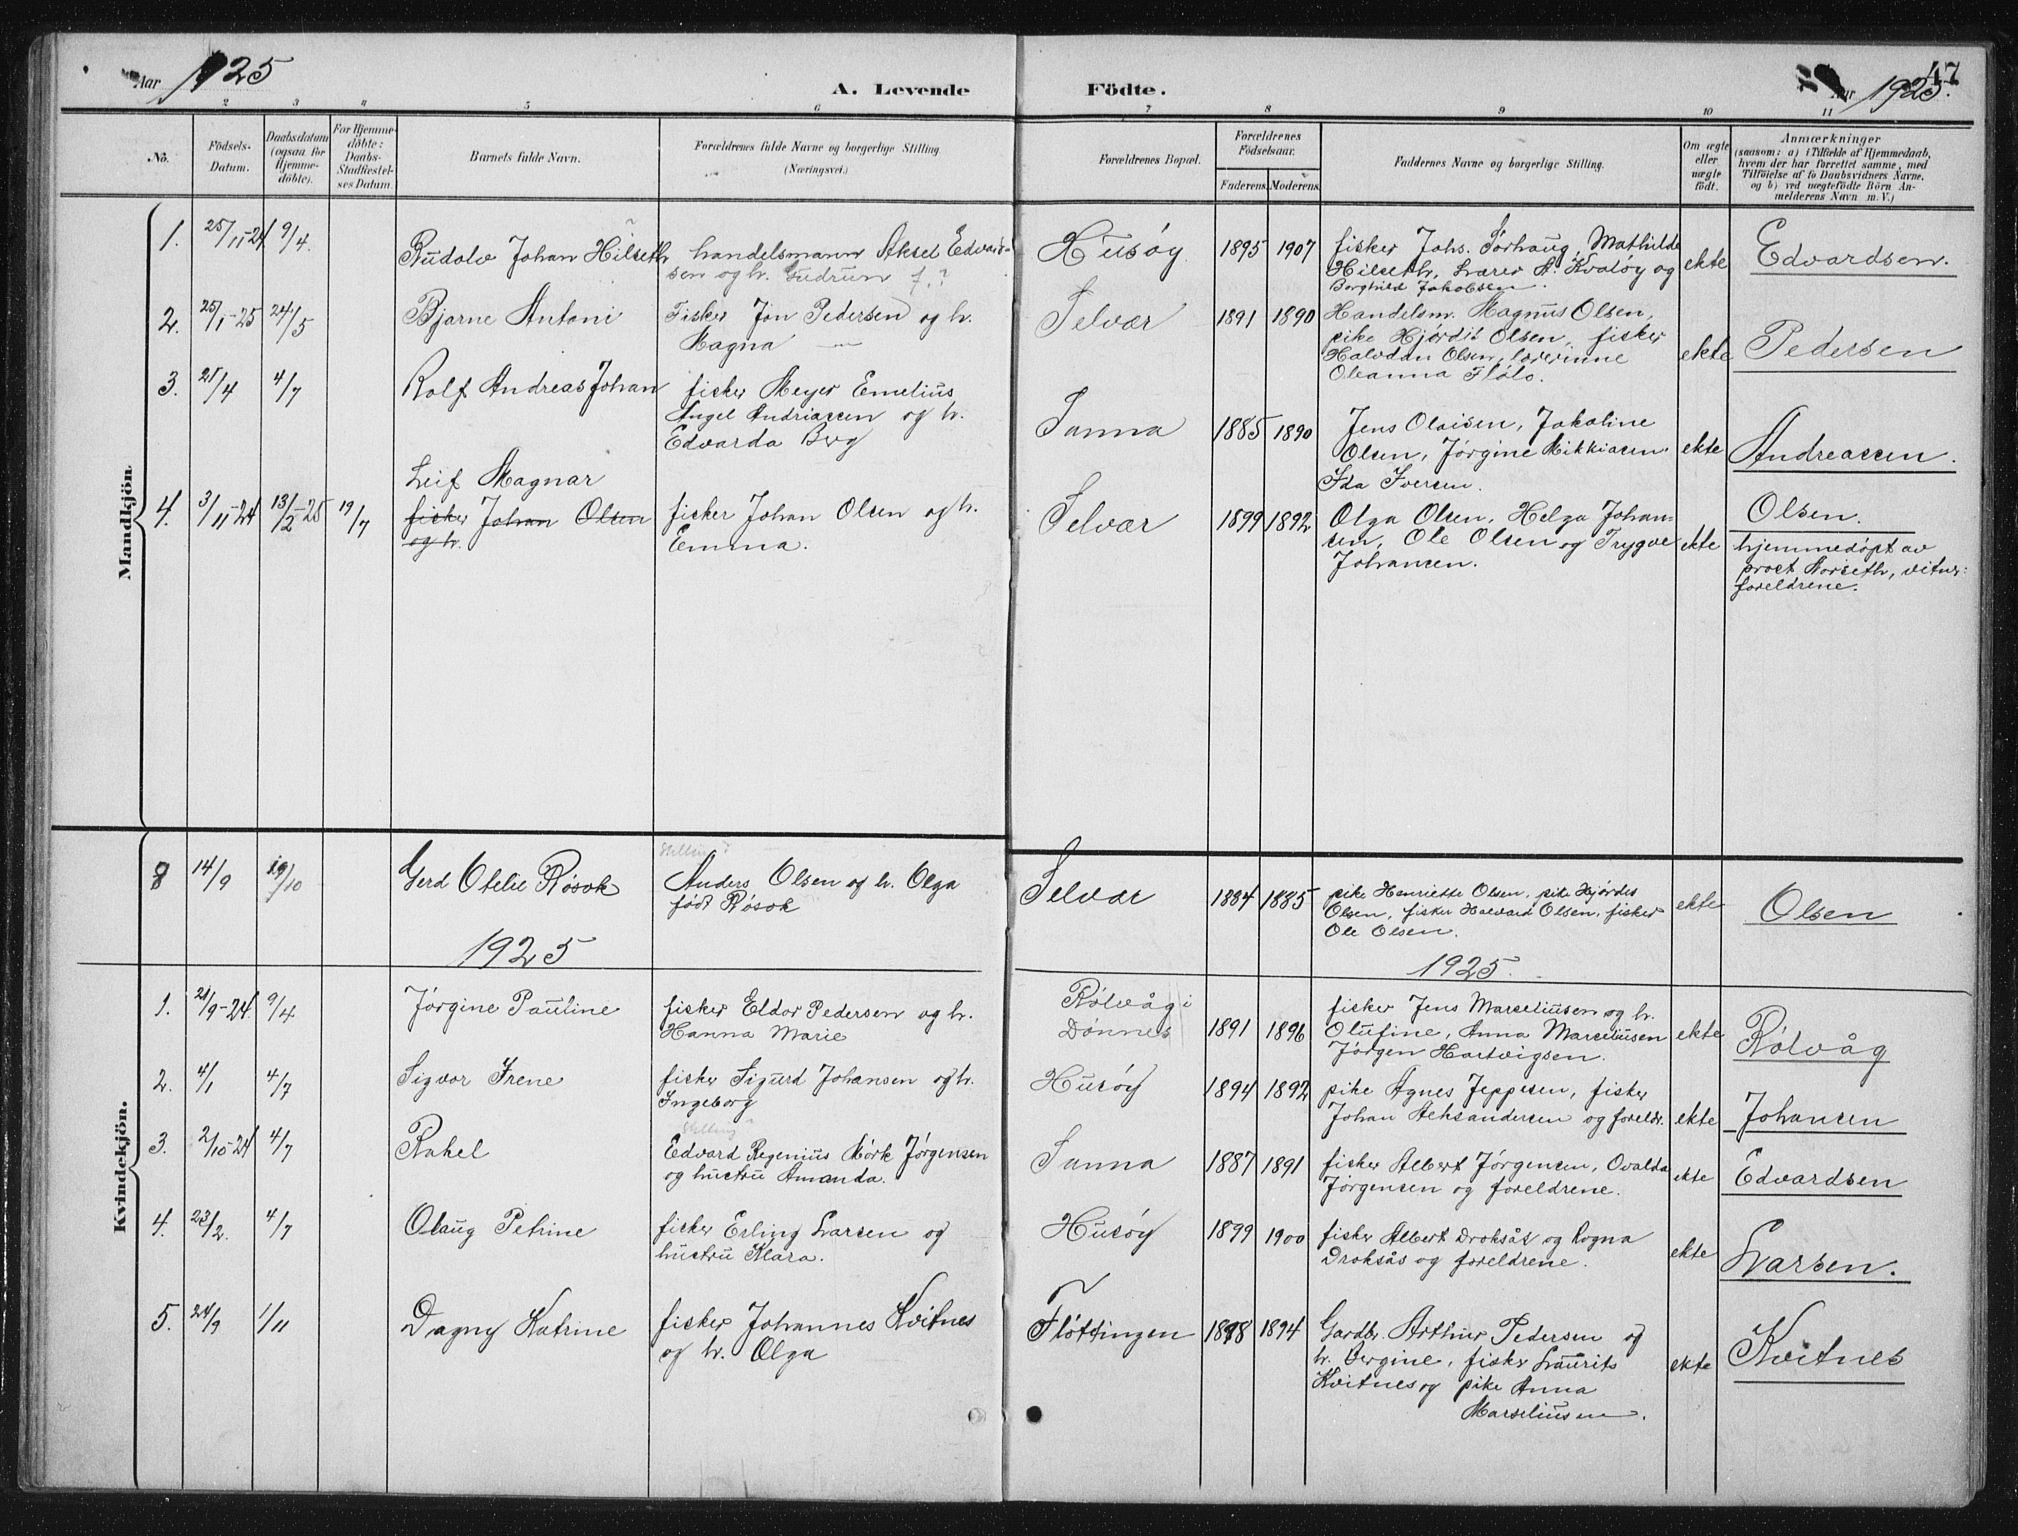 Aar 1925
A. Levende Födte.
Aar 1925.
47
2 3 4 5 6 7 8 9 10 11
No.
Födsels-Datum.
Daabsdatum (ogsaa for Hjemme-döbte).
For Hjemme-döbte: Daabs-Stadfæstel-ses Datum.
Barnets fulde Navn.
Forældrenes fulde Navne og borgerlige Stilling (Næringsvei.)
Forældrenes Bopæl.
Forældrenes Födselsaar.
Faderens. Moderens.
Faddernes Navne og borgerlige Stilling.
Om ægte eller uægte födt.
Anmærkninger
(saasom: a) i Tilfælde af Hjemmedaab,
hvem der har forrettet samme, med
Tilföielse af to Daabsvidners Navne,
og b) ved uægtefödte Börn An-
melderens Navn m. V.)
Mandkjön
1. 25/11-24 9/4. Rudolv Johan Hilseth handelsmann Aksel Edvard-
sen og h. Gudrun f.?
Husøy 1895 1907 fisker Johs. Sørhaug, Mathilde
Hilseth, Lærer A. Kvaløy og
Borghild Jakobsen. ekte Edvardsen.
2. 25/1-25 24/5 Bjarne Antoni Fisker Jon Pedersen og h.
Magna
Selvær 1891 1890 Handelsm. Magnus Olsen,
pike Hjørdis Olsen, fisker
Halvdan Olsen, lærerinne
Oleanna Flølo. ekte Pedersen
3. 25/4 4/7 Rolf Andreas Johan fisker Meyer Emelius
Angel Andriassen og h.
Edvarda Berg
Sanna 1885 1890 Jens Olaisen, Jakoline
Olsen, Jørgine Mikkiasen.
Ida Iversen. ekte Andreassen.
4. 3/11-24 13/2-25 19/7 Leif Magnar
fisker Johan Olsen
og h.
fisker Johan Olsen og h.
Emma.
Selvær 1899 1892 Olga Olsen, Helga Johan-
sen, Ole Olsen og Trygve
Johansen. ekte Olsen.
hjemmedøpt av
prost Norseth, vitner:
foreldrene.
8 14/9 19/10 Gerd Otelie Røsok Stilling?
Anders Olsen og h. Olga
født Røsok
Selvær 1884 1885 pike Henriette Olsen, pike Hjørdis
Olsen, fisker Halvard Olsen, fisker
Ole Olsen. ekte Olsen
1925 1925.
Kvindekjön.
1. 21/9-24. 9/4. Jørgine Pauline fisker Eldor Pedersen og h.
Hanna Marie
Rølvåg i
Dønnes 1891 1896 fisker Jens Marseliusen og h.
Olufine, Anna Marseliusen
Jørgen Hartvigsen. ekte Rølvåg
2. 4/1 4/7 Sigvor Irene fisker Sigurd Johansen og h.
Ingeborg
Husøy 1894 1892 pike Agnes Jeppesen, fisker
Johan Aleksandersen og foreldr. ekte Johansen
3. 2/10-24 4/7 Rakel Stilling?
Edvard Regenius Mørk Jørgensen
og hustru Amanda.
Sanna 1887 1891 fisker Albert Jørgensen, Ovalda
Jørgensen og foreldrene. ekte Edvardsen
4. 23/2. 4/7 Olaug Petrine fisker Erling Larsen og
hustru Klara.
Husøy 1899 1900 fisker Albert Droksås og Rogna
Droksås og foreldrene. ekte Larsen.
5. 24/9 1/11 Dagny Katrine fisker Johannes Kvitnes
og h. Olga
Fløttingen 1898 1894 Gardbr. Arthur Pedersen og
h. Bergine, fisker Laurits
Kvitnes og pike Anna
Marseliusen. ekte Kvitnes